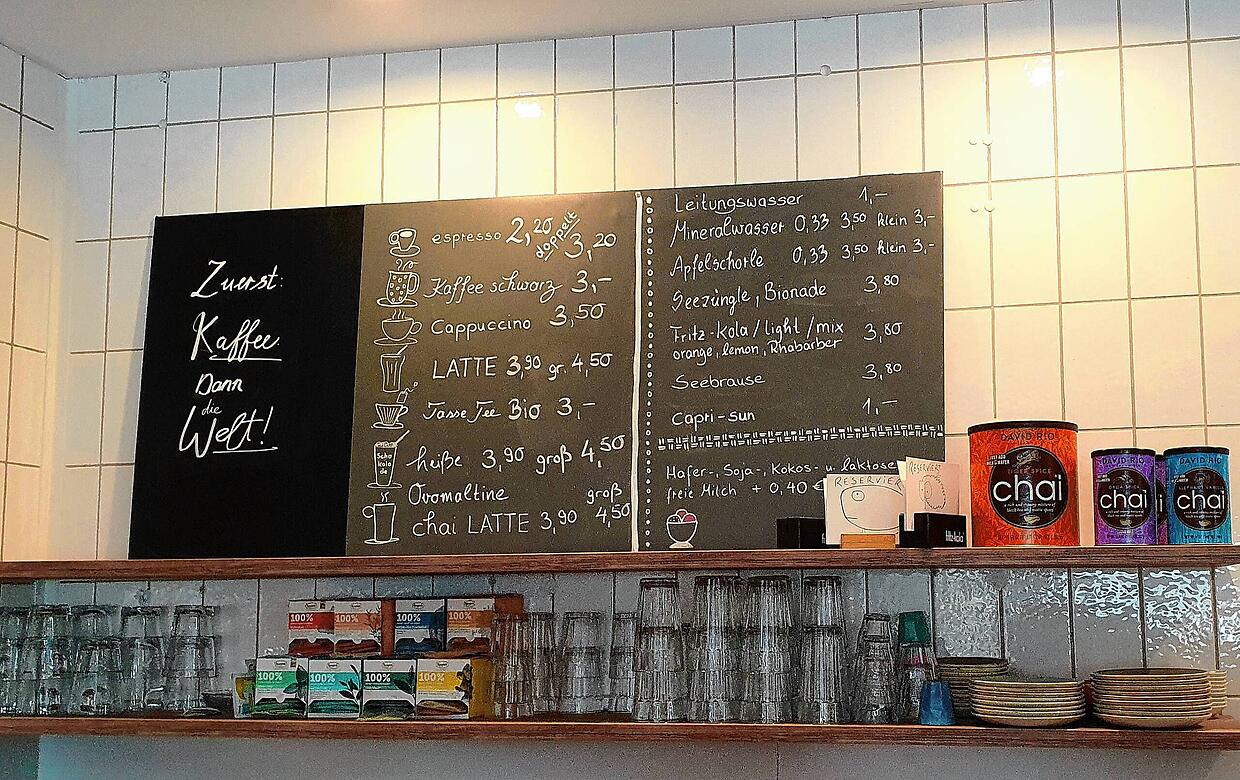 Zuerst:
Kaffee
Dann
die
Welt!
espresso 2,20 doppelt 3,20
Kaffee schwarz 3,-
Cappuccino 3,50
LATTE 3,90 gr. 4,50
Tasse Tee Bio 3,-
Scho
kola
de
heiße 3,90 groß 4,50
Ovomaltine
chai LATTE 3,90 groß 4,50
Leitungswasser 1,-
Mineralwasser 0,33 3,50 klein 3,-
Apfelschorle 0,33 3,50 klein 3,-
Seezüngle, Bionade 3,80
Fritz-Kola/light/mix 3,80
orange, lemon, Rhabarber
Seebrause 3,80
Capri-Sun 1,-
Hafer-, Soja-, Kokos- u. laktose
freie Milch + 0,40 €
RESERVIERT
RESERVIERT
fritz-kola
DAVID RIO
TIGER SPICE
chai
DAVID RIO
ORCA SPICE
chai
DAVID RIO
ELEPHANT VANILLA
chai
100%
100%
100%
100%
100%
100%
100%
100%